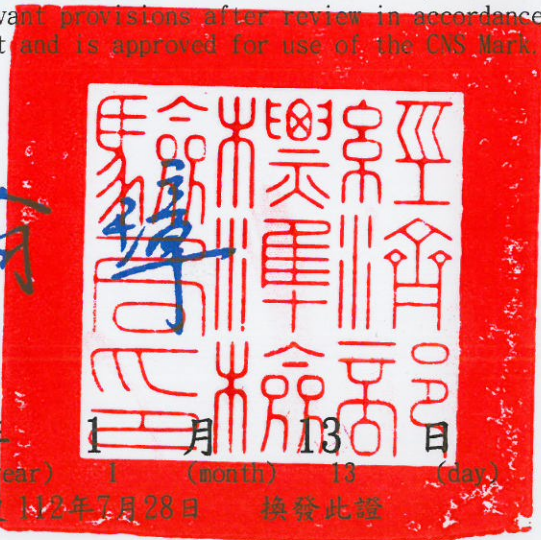 vant provisions after review in accordance
t and is approved for use of the CNS Mark.
經濟部
標準檢
驗局印
1 月 13 日
ear) 1 (month) 13 (day)
112年7月28日 換發此證